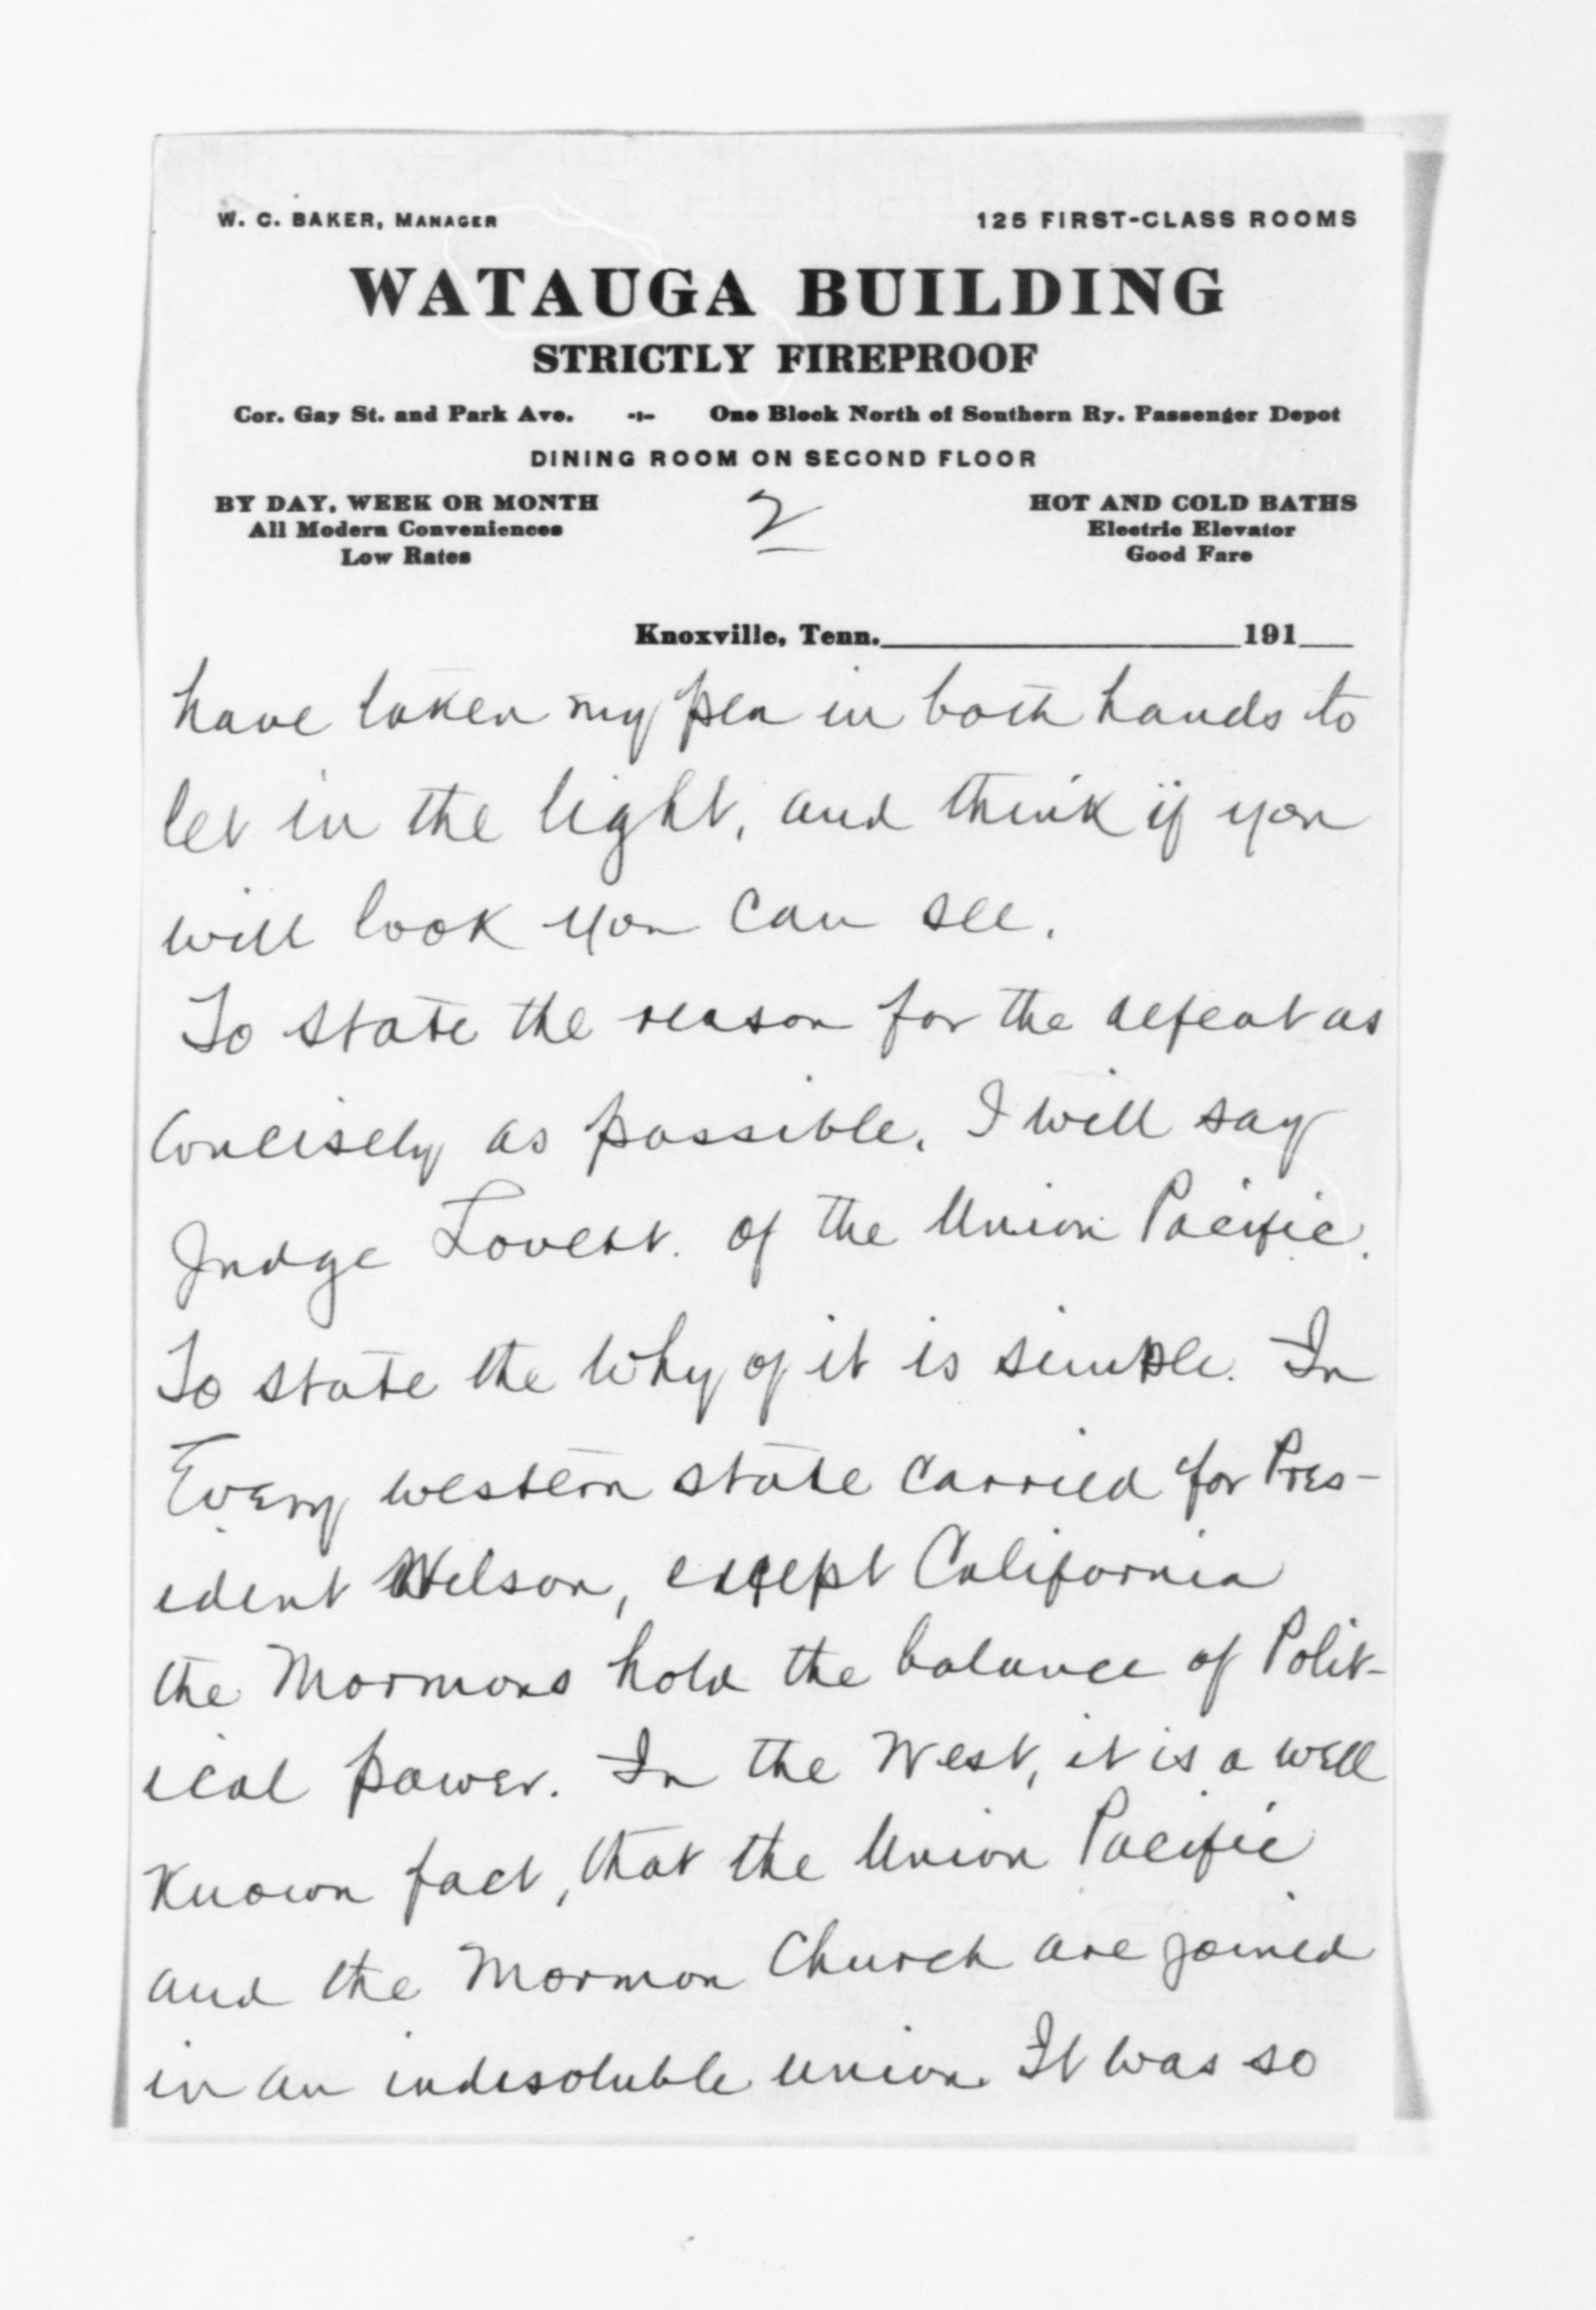 W. C. BAKER, MANAGER 125 FIRST-CLASS ROOMS
WATAUGA BUILDING
STRICTLY FIREPROOF
Cor. Gay St. and Park Ave. -:- One Block North of Southern Ry. Passenger Depot
DINING ROOM ON SECOND FLOOR
BY DAY, WEEK OR MONTH 2 HOT AND COLD BATHS
All Modern Conveniences Electric Elevator
Low Rates Good Fare
Knoxville, Tenn. 191
have taken my pen in both hands to
let in the light, and think if you
will look you can see.
To state the reason for the defeat as
concisely as possible, I will say
Judge Lovett. of the Union Pacific.
To state the why of it is simple. In
Every western state carried for Pres-
ident Wilson, except California
the Mormons hold the balance of Polit-
ical power. In the West, it is a well
Known fact, that the Union Pacific
and the Mormon Church are joined
in an indisoluble union. It was so